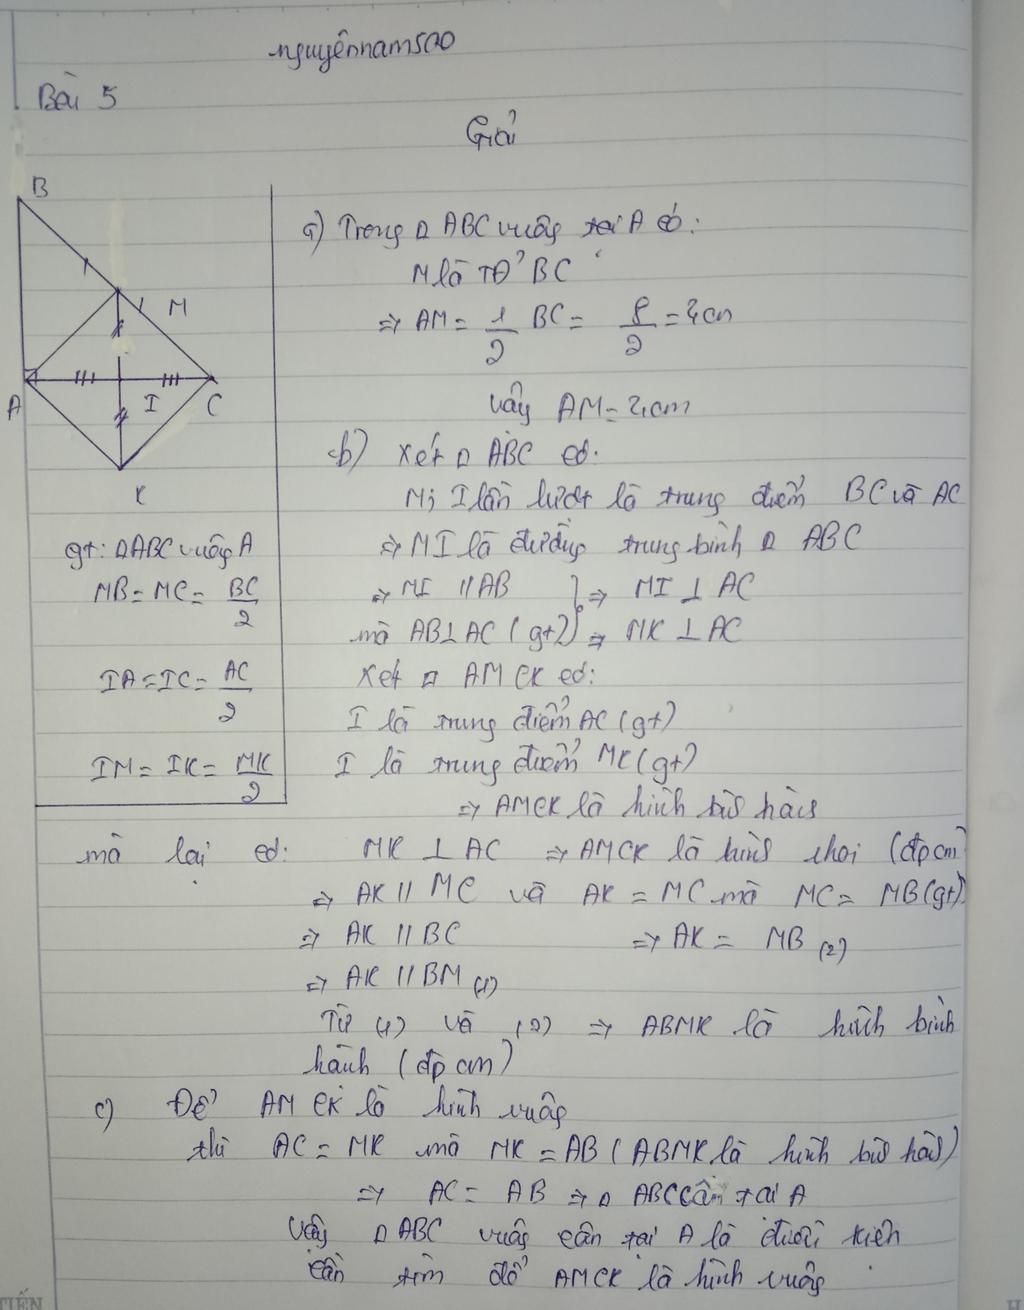 nguyênnam500
Bài 5
Giải
B
M
A
I
C
K
gt: ΔABC vuông A
MB = MC = BC/2
IA = IC = AC/2
IM = IK = MK/2
a) Trong Δ ABC vuông tại A có:
M là TĐ' BC
=> AM = 1/2 BC = 8/2 = 4cm
vậy AM = 4cm
b) Xét Δ ABC có:
M; I lần lượt là trung điểm BC và AC
=> MI là đường trung bình Δ ABC
=> MI // AB } => MI ⊥ AC
mà AB ⊥ AC (gt) => MK ⊥ AC
Xét □ AMCK có:
I là trung điểm AC (gt)
I là trung điểm MK (gt)
=> AMCK là hình bìh hàh
mà lại có: MK ⊥ AC => AMCK là hình thoi (đpcm)
=> AK // MC và AK = MC mà MC = MB (gt)
=> AK // BC => AK = MB (2)
=> AK // BM (1)
Từ (1) và (2) => ABMK là hình bình
hành (đpcm)
c) Để AMCK là hình vuông
thì AC = MK mà MK = AB (ABMK là hình bìh hàh)
=> AC = AB => Δ ABC cân tại A
Vậy Δ ABC vuông cân tại A là điều kiện
cần tìm để AMCK là hình vuông
TIẾN